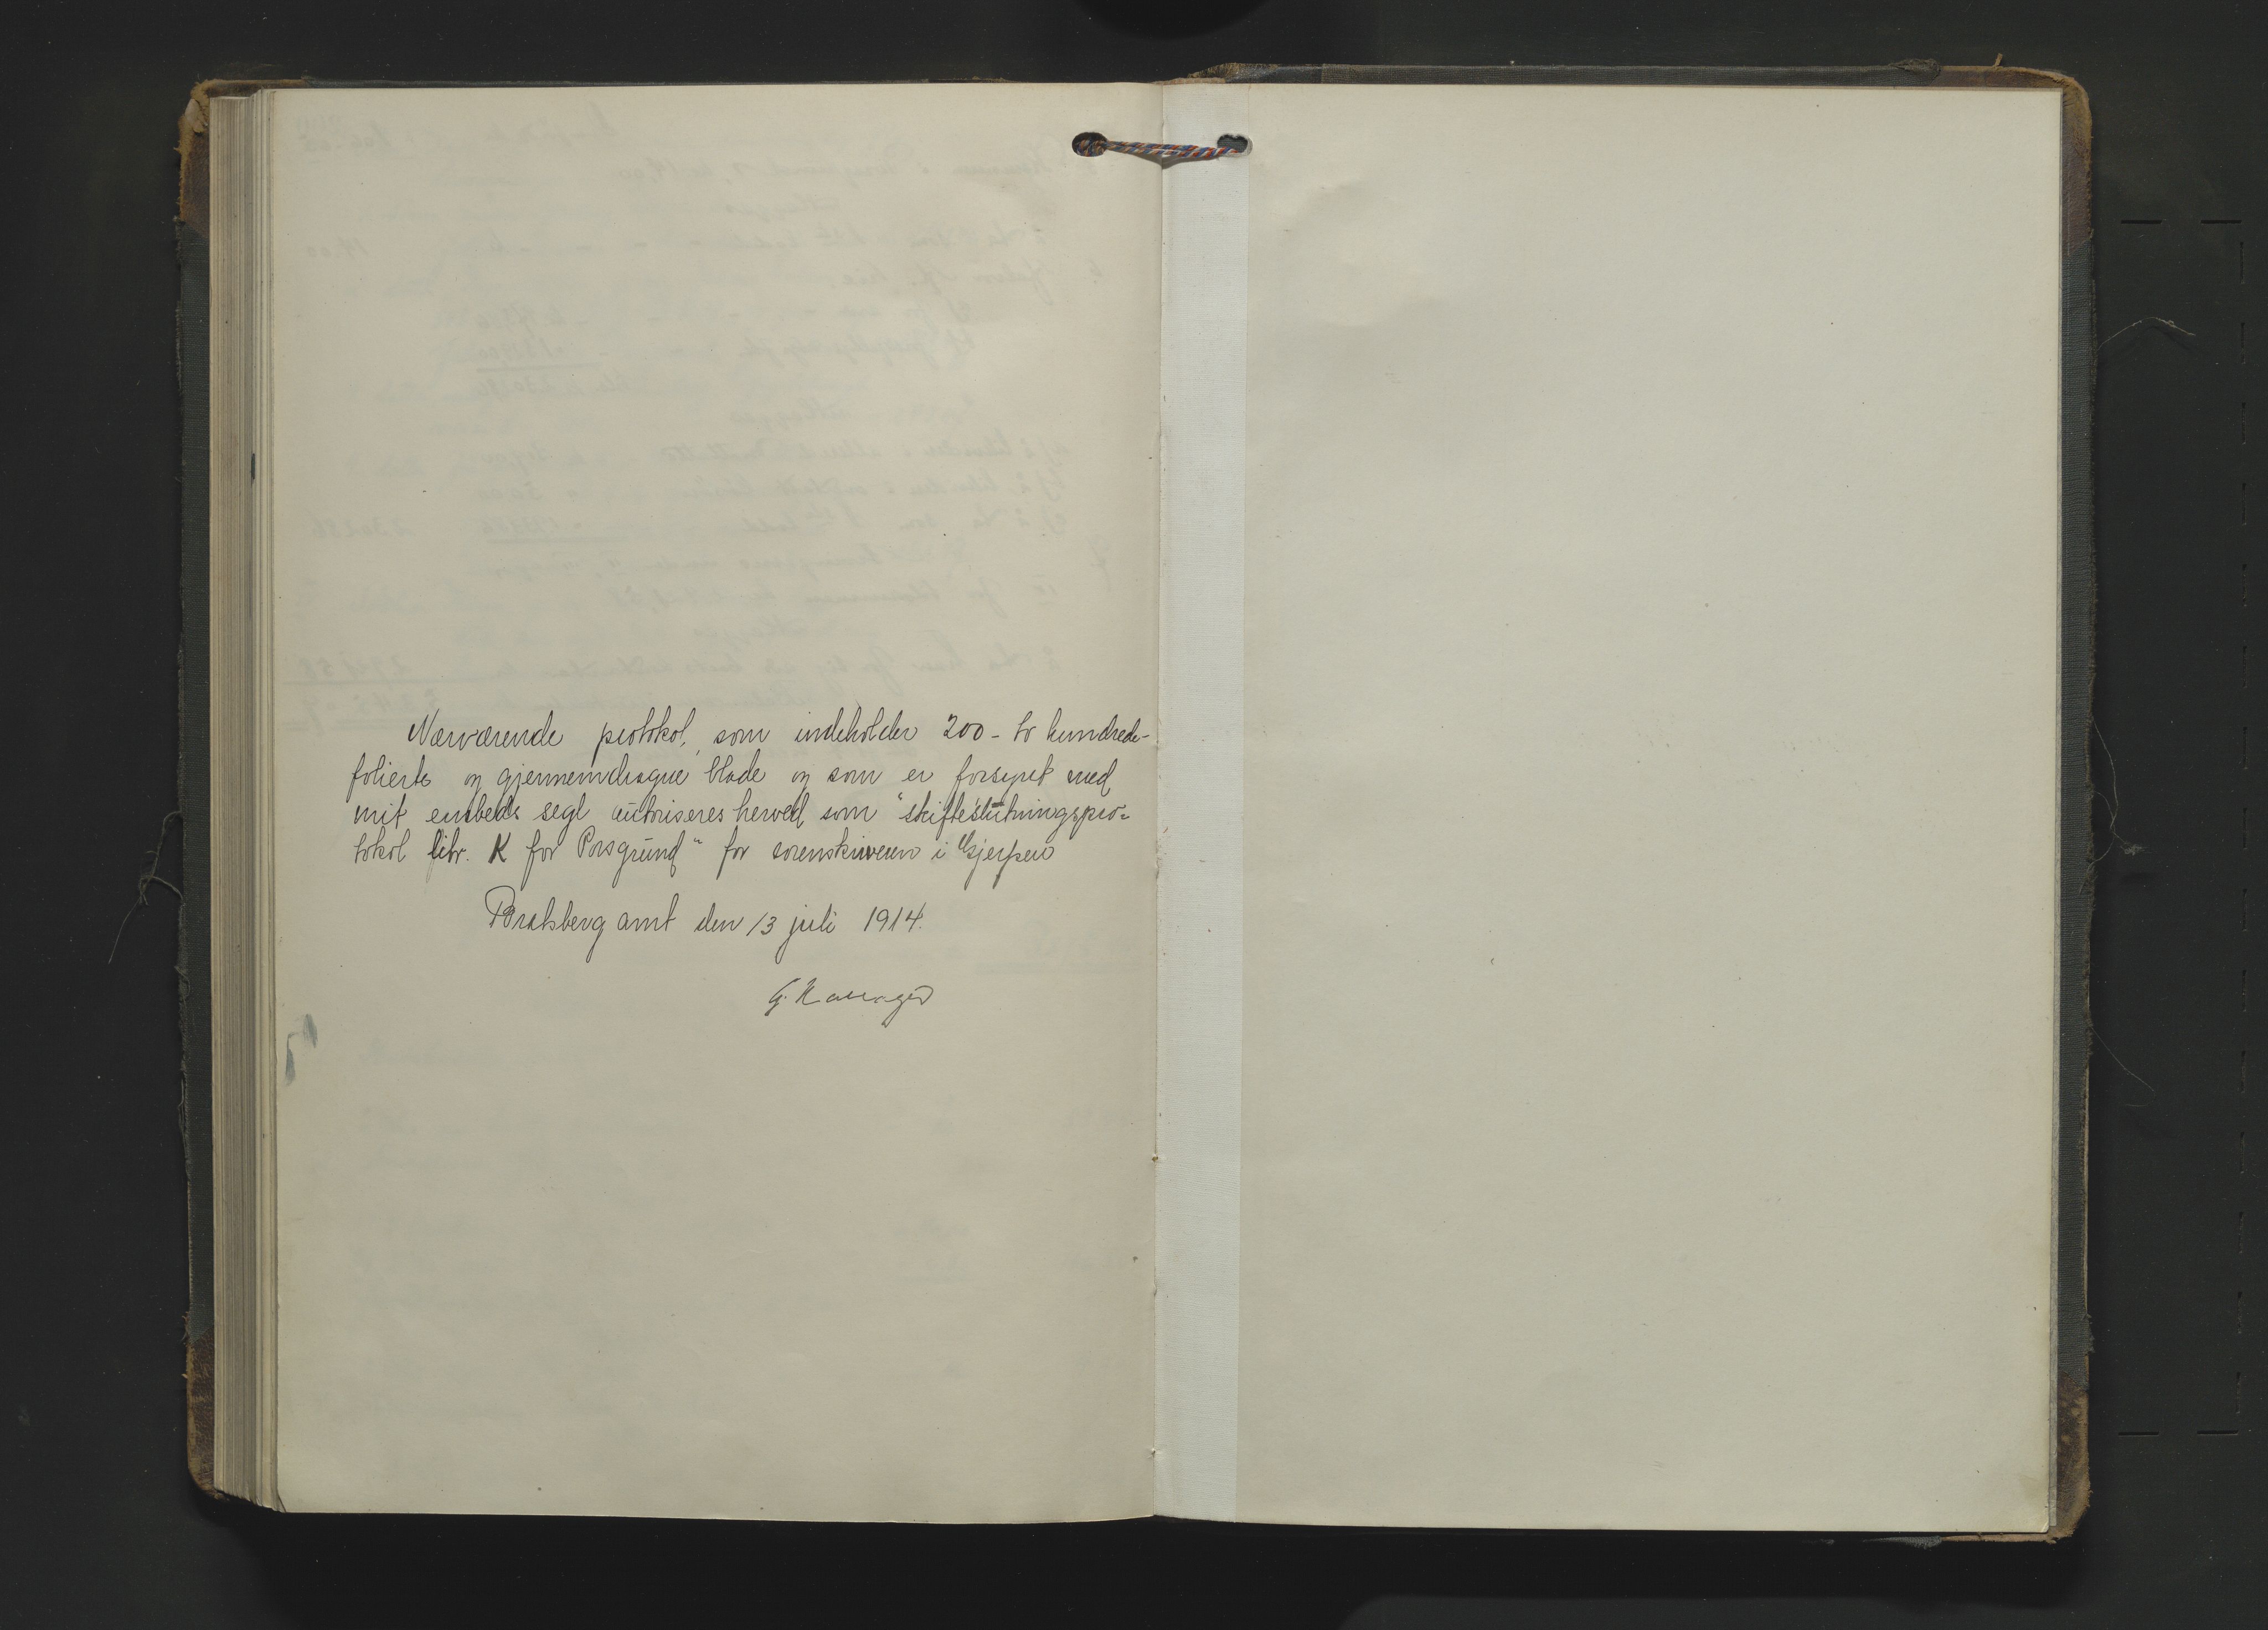 Nærværende protokol, som indeholder 200 - to hundrede-
folierte og gjennemdragne blade og som er forsynet med
mit embeds segl autoriseres herved som "skifteslutningspro=
tokol libr. K for Porsgrund" for sorenskriveren i Gjerpen
Bratsberg amt den 13 juli 1914.